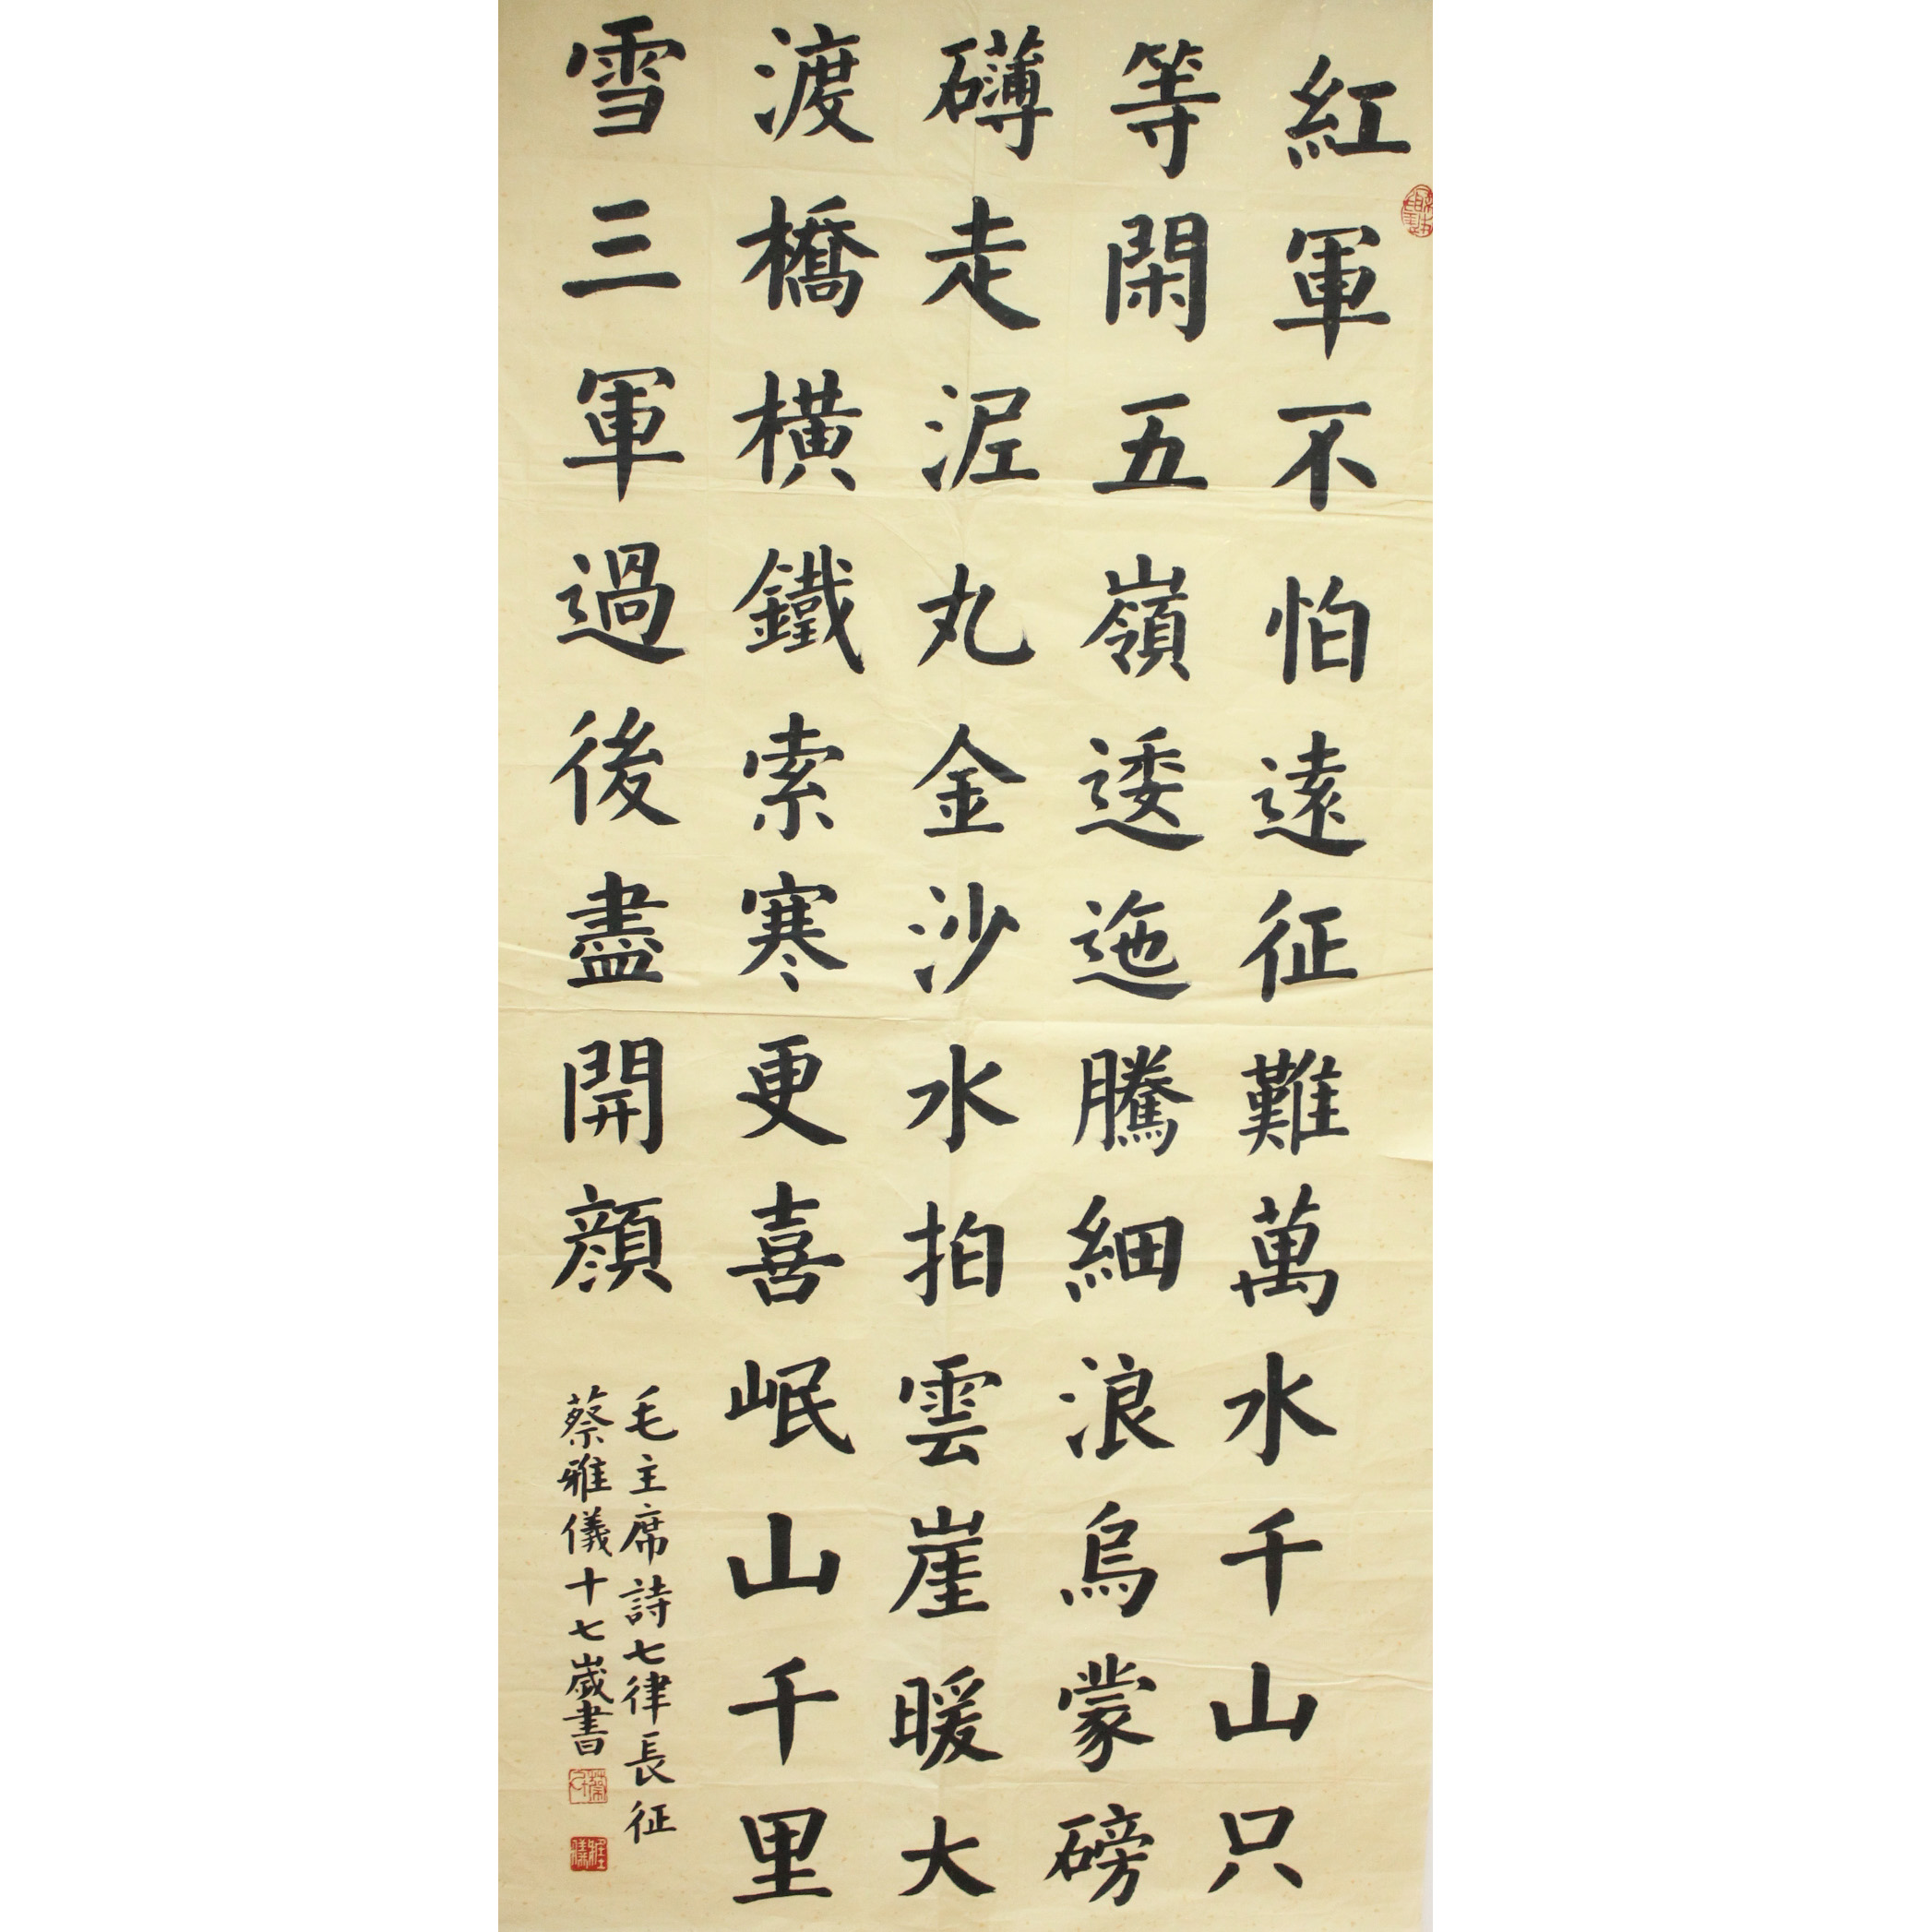 紅軍不怕遠征難萬水千山只
等閑五嶺逶迤騰細浪烏蒙磅
礴走泥丸金沙水拍雲崖暖大
渡橋橫鐵索寒更喜岷山千里
雪三軍過後盡開顏
毛主席詩七律長征
蔡雅儀十七歲書